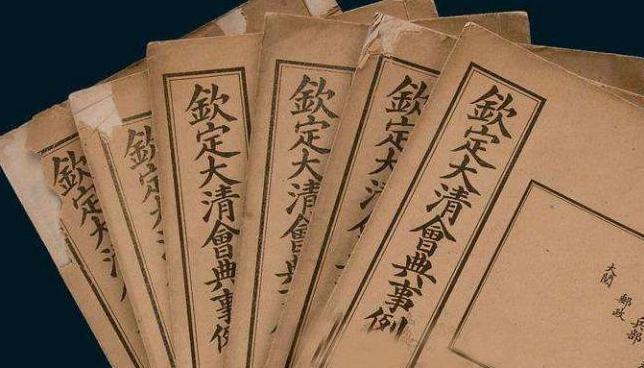 欽定大
欽定大
欽定大清會典事例
欽定大清會典
欽定大清
欽定大清會典事例
兵部
郵政